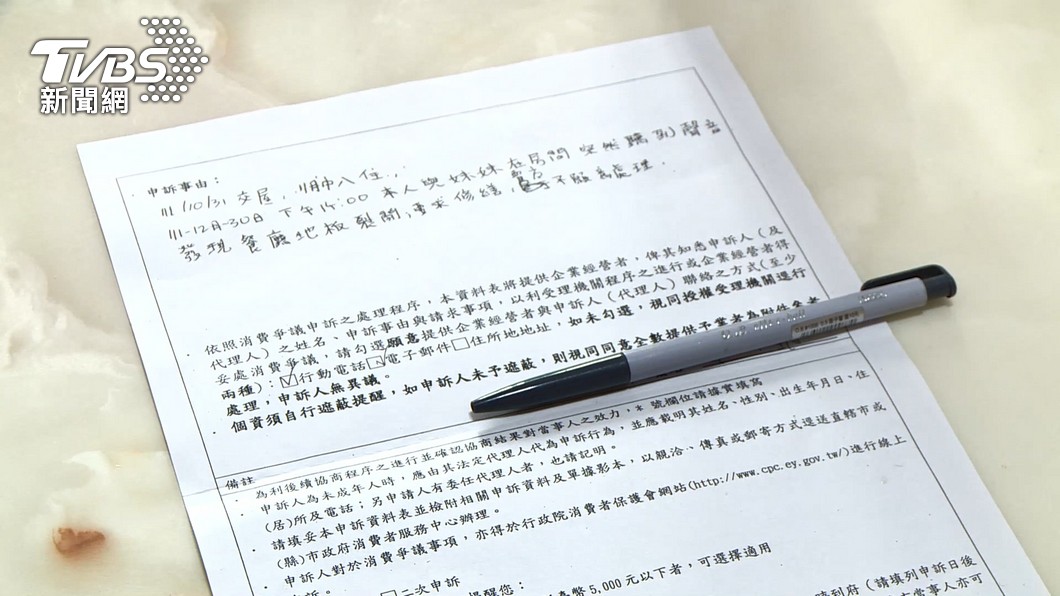 TVBS
新聞網
申訴事由：
111/10/31 交屋，
111-12月-30日 下午14:00 本人與妹妹在房間 突然聽到聲音
發現 餐廳地板裂開，要求修繕，不願意處理．
依照消費爭議申訴之處理程序，本資料表將提供企業經營者，俾其知悉申訴人（及
代理人）之姓名、申訴事由與請求事項，以利受理機關程序之進行或企業經營者得
妥處消費爭議，請勾選願意提供企業經營者與申訴人（代理人）聯絡之方式(至少
兩種)：☑行動電話☑電子郵件□住所地地址，如未勾選，視同授權受理機關逕行
處理，申訴人無異議。
個資須自行遮蔽提醒，如申訴人未予遮蔽，則視同同意全數提供予業者為附件參考
備註
為利後續協商程序之進行並確認協商結果對當事人之效力，* 號欄位請據實填寫
申訴人為未成年人時，應由其法定代理人代為申訴行為，並應載明其姓名、性別、出生年月日、住
(居)所及電話；另申請人有委任代理人者，也請記明。
請填妥本申訴資料表並檢附相關申訴資料及單據影本，以親洽、傳真或郵寄方式遞送直轄市或
(縣)市政府消費者服務中心辦理。
申訴人對於消費爭議事項，亦得於行政院消費者保護會網站(http://www.cpc.ey.gov.tw/)進行線上
申訴。
□二次申訴
提醒您：
幣 5,000 元以下者，可選擇適用
到府（請填列申訴日後
當事人亦可